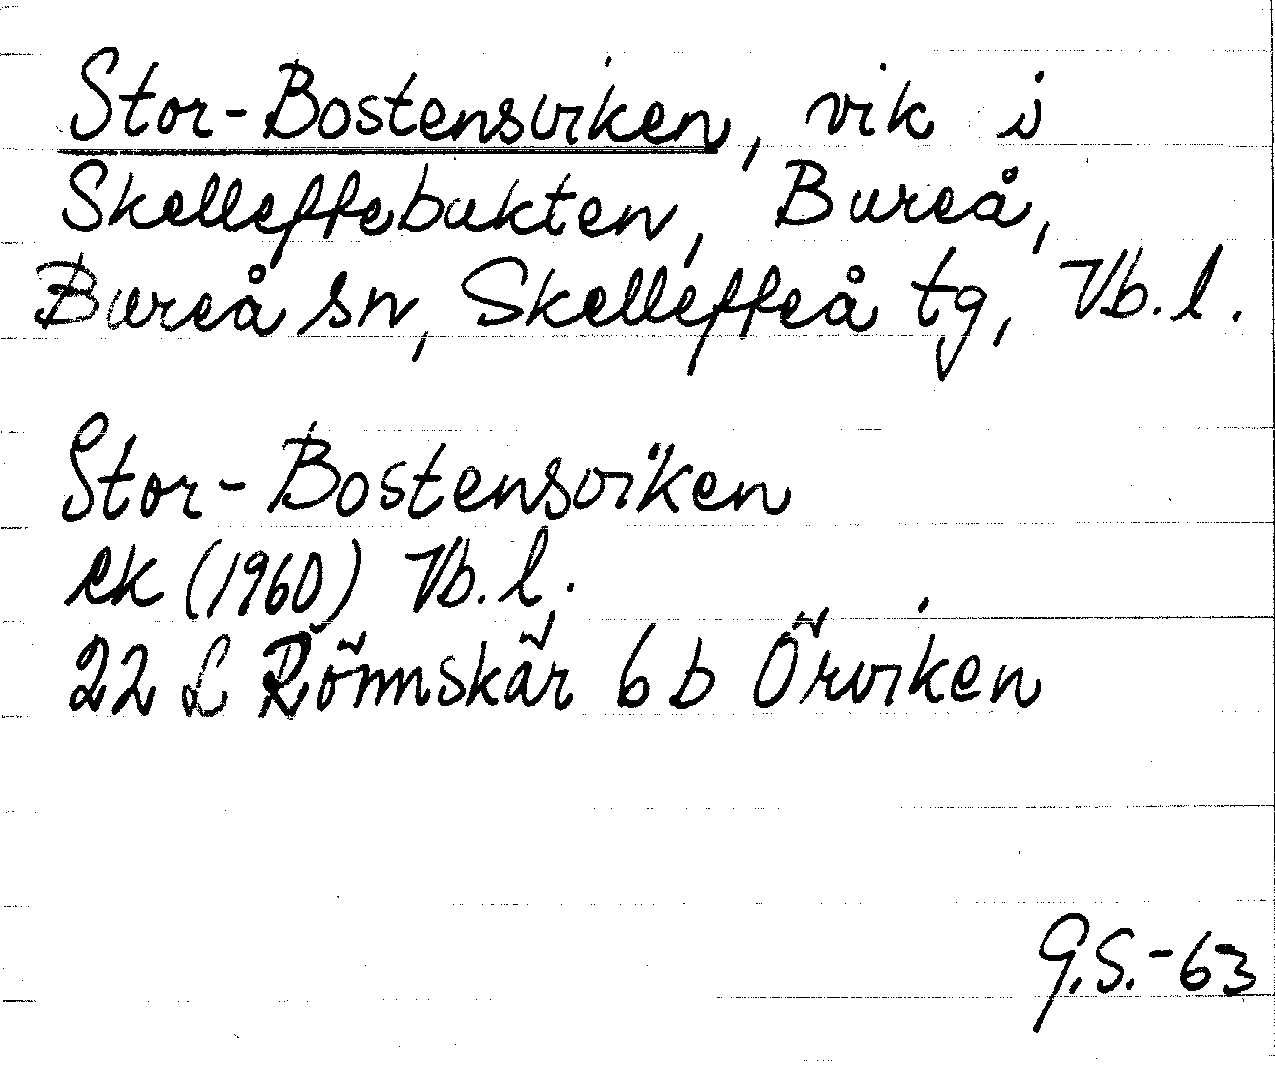 Stor-Bostensviken, vik i
Skelleftebukten, Bureå,
Bureå sn, Skellefteå tg, Vb. l.
Stor-Bostensviken
ek (1960) Vb. l.
22 L Rönnskär 6 b Örviken
G.S.-63